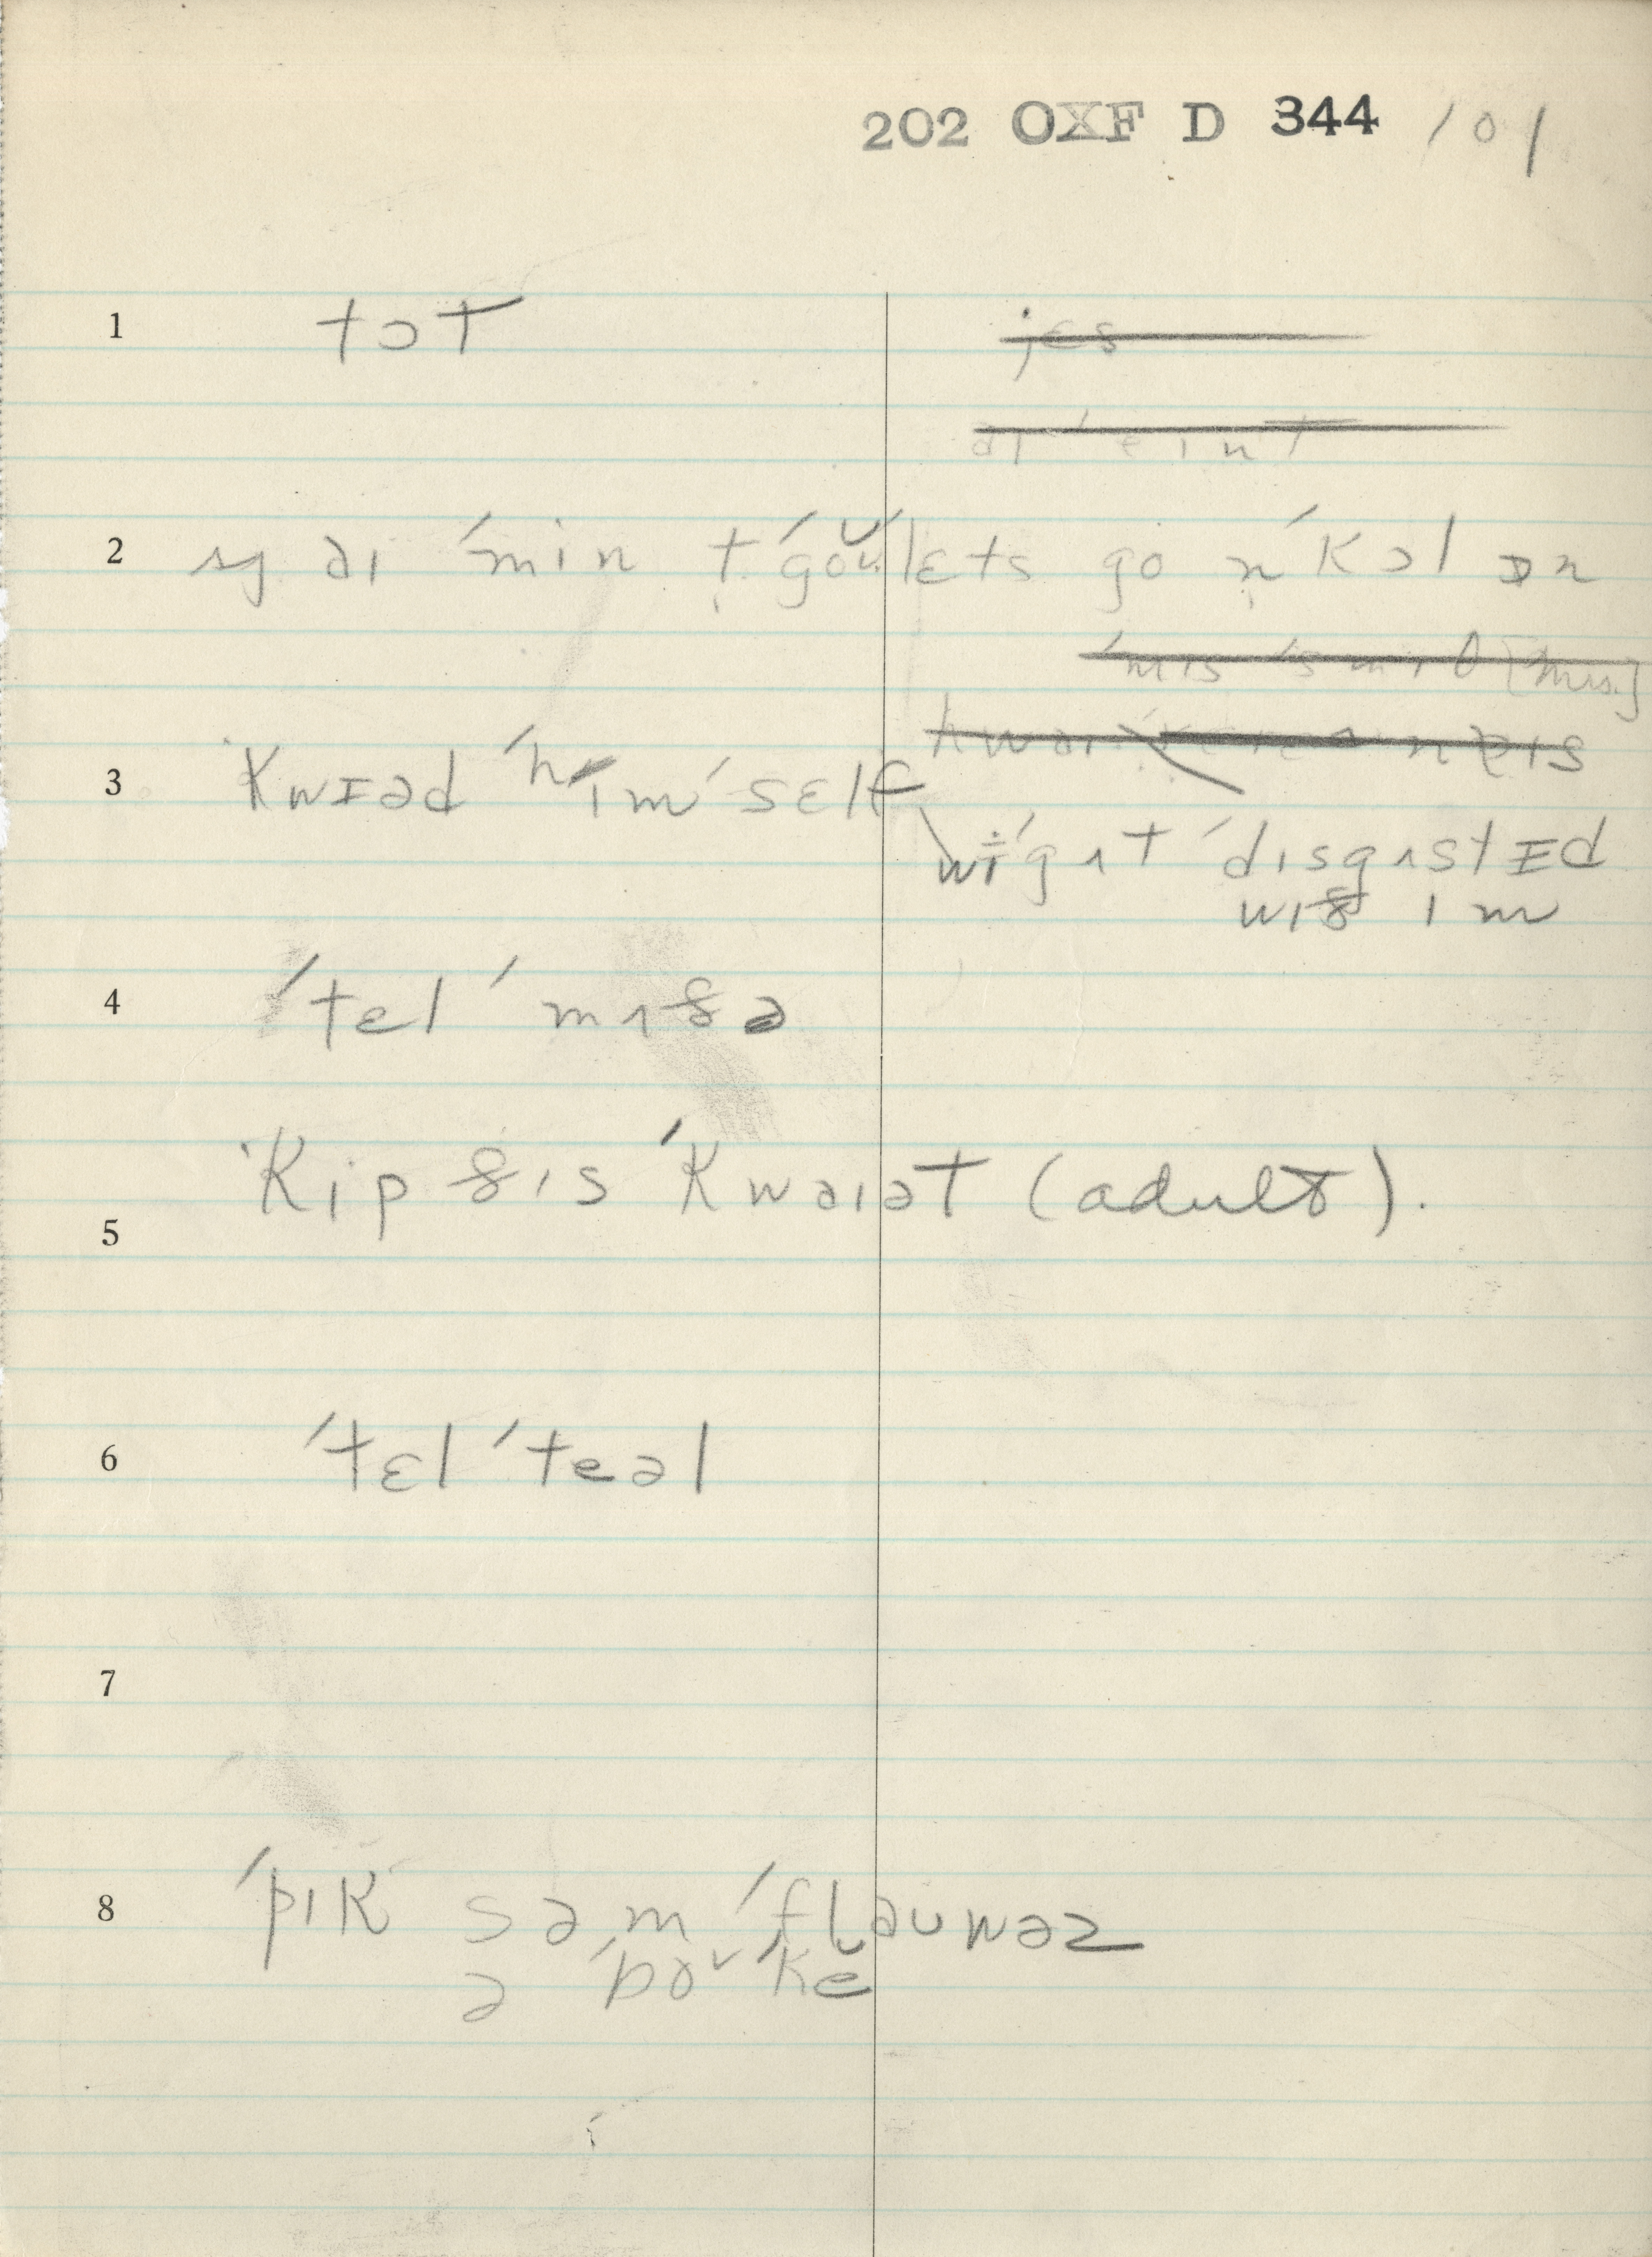 202 OXF D 344 101
1 tɔt ~~jɛs~~
2 sɟ aɪ ˈmin t̩ ˈgoʊ̆ lɛts go n̩ ˈkɔl ɒn
~~ˈmɪs ˈsmɪθ [Mrs.]~~
3 ˈkwɪəd ˈhɪm ˈsɛlf
wɪ ˈgʌt ˈdɪsgʌstɪd
wɪð ɪm
4 ˈtel ˈmʌðə
5 ˈkip ðɪs ˈkwaɪət (adult).
6 ˈtɛl ˈteəl
7
8 ˈpɪk səm ˈflaʊwəz
ə ˈboʊ̆ ˈkĕ